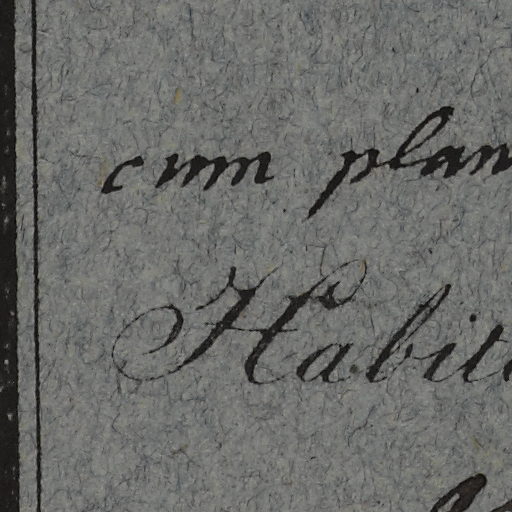 cum plan
Habit